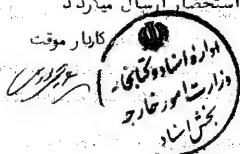 استحضار ارسال میگردد
کاردار موقت
اداره اسناد و کتابخانه
وزارت امور خارجه
بخش اسناد